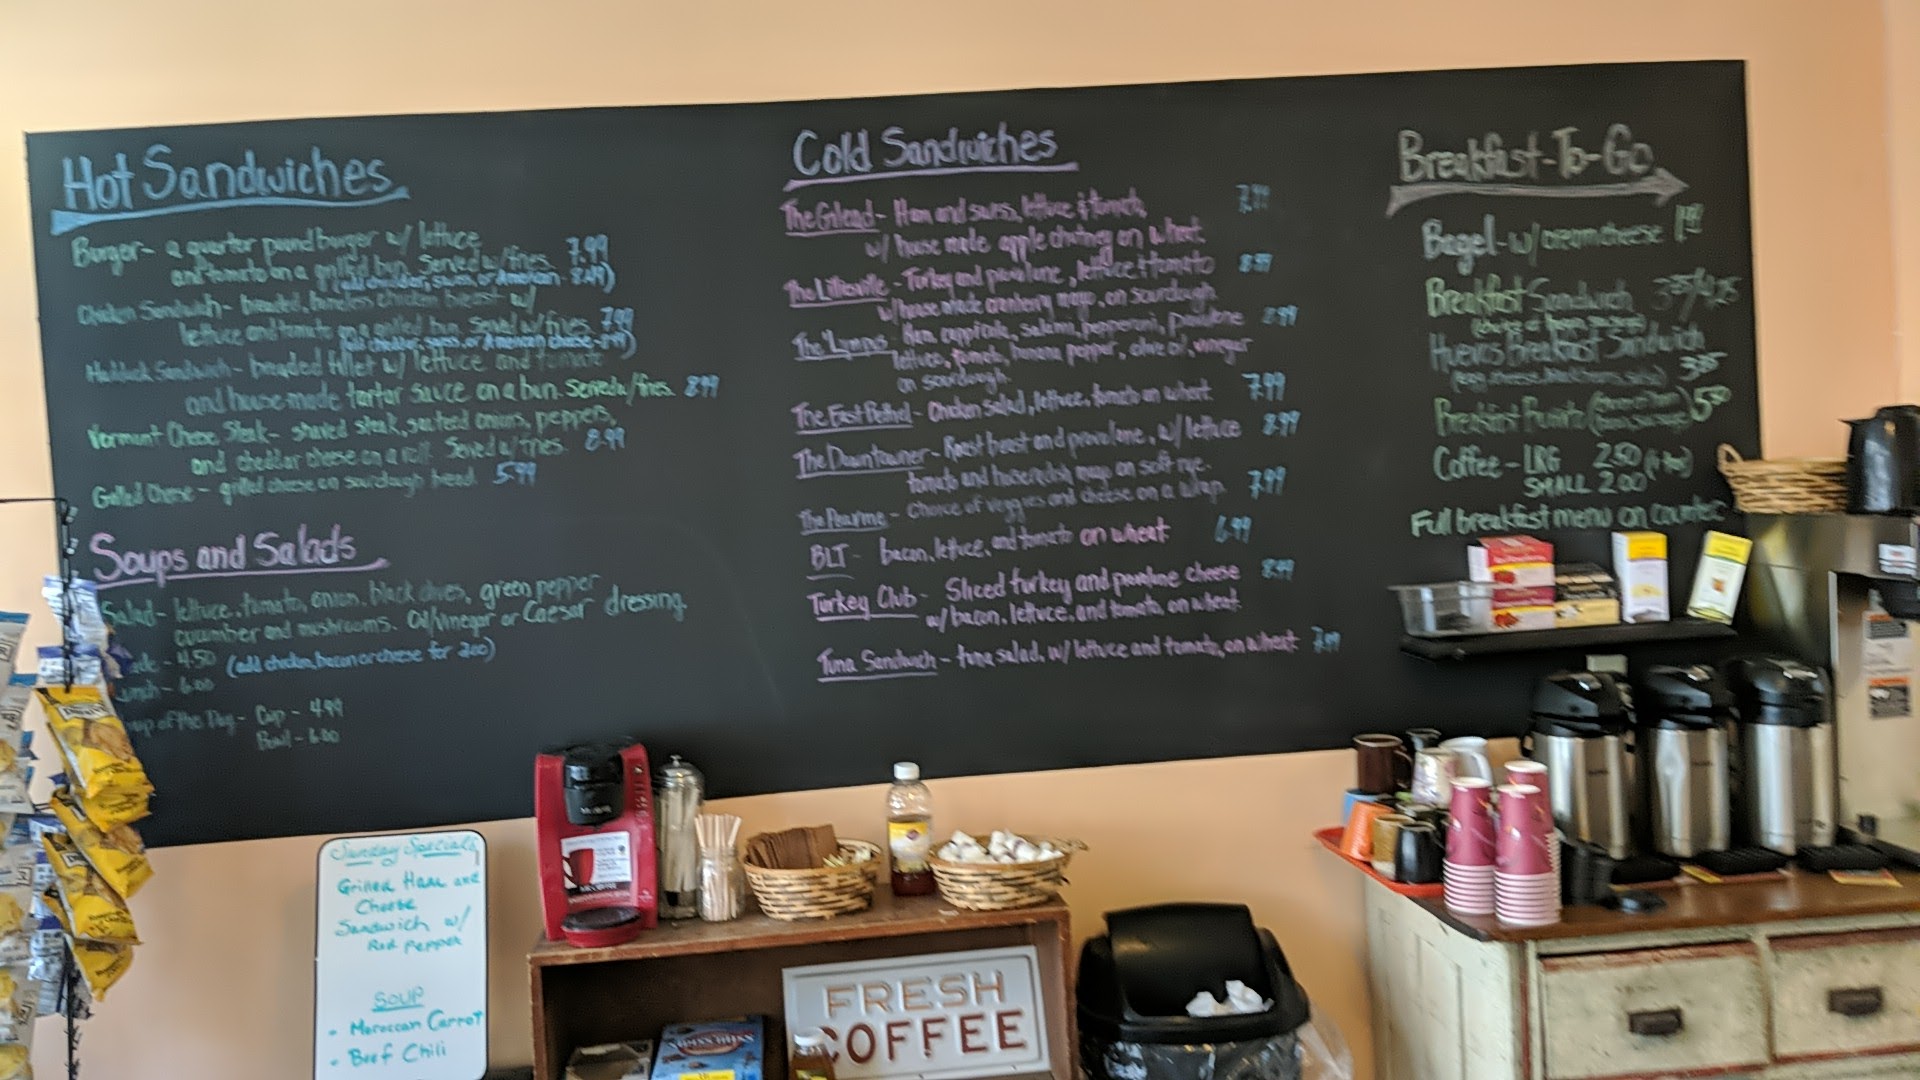 Hot Sandwiches
Burger - a quarter pound burger w/ lettuce
and tomato on a grilled bun. Served w/fries. 7.99
(add cheddar, swiss, or American 8.49)
Chicken Sandwich - breaded, boneless chicken breast w/
lettuce and tomato on a grilled bun. Served w/fries. 7.99
(add cheddar, swiss, or American cheese - 8.49)
Haddock Sandwich - breaded fillet w/ lettuce and tomato
and house-made tartar sauce on a bun. Served w/fries. 8.99
Vermont Cheese Steak - shaved steak, sauteed onions, peppers,
and cheddar cheese on a roll. Served w/fries. 8.99
Grilled Cheese - grilled cheese on sourdough bread. 5.99
Soups and Salads
Salad - lettuce, tomato, onion, black olives, green pepper
cucumber and mushrooms. Oil/vinegar or Caesar dressing.
4.50 (add chicken, bacon or cheese for 2.00)
6.00
of the Day - Cup - 4.99
Bowl - 6.00
Cold Sandwiches
The Gilead - Ham and swiss, lettuce & tomato, 7.99
w/ house made apple chutney on wheat.
The Littleville - Turkey and provolone, lettuce & tomato 8.99
w/house made cranberry mayo, on sourdough.
The Lyons - Ham, cappicola, salami, pepperoni, provolone 8.99
lettuce, tomato, banana pepper, olive oil, vinegar
on sourdough.
The East Bethel - Chicken salad, lettuce, tomato on wheat. 7.99
The Downtowner - Roast beast and provolone, w/ lettuce 8.99
tomato and horseradish mayo on soft rye.
The - Choice of veggies and cheese on a wrap. 7.99
BLT - bacon, lettuce, and tomato on wheat. 6.99
Turkey Club - Sliced turkey and provolone cheese 8.99
w/bacon, lettuce, and tomato, on wheat.
Tuna Sandwich - tuna salad, w/ lettuce and tomato, on wheat. 7.99
Breakfast-To-Go
Bagel - w/ cream cheese
Breakfast Sandwich
Breakfast Sandwich
Breakfast Burrito 5.50
Coffee - LRG 2.50
SMALL 2.00
Full breakfast menu on counter
Sunday Specials
Grilled Ham and
Cheese
Sandwich w/
Red Pepper
SOUP
• Moroccan Carrot
• Beef Chili
FRESH
COFFEE
SWISS MISS